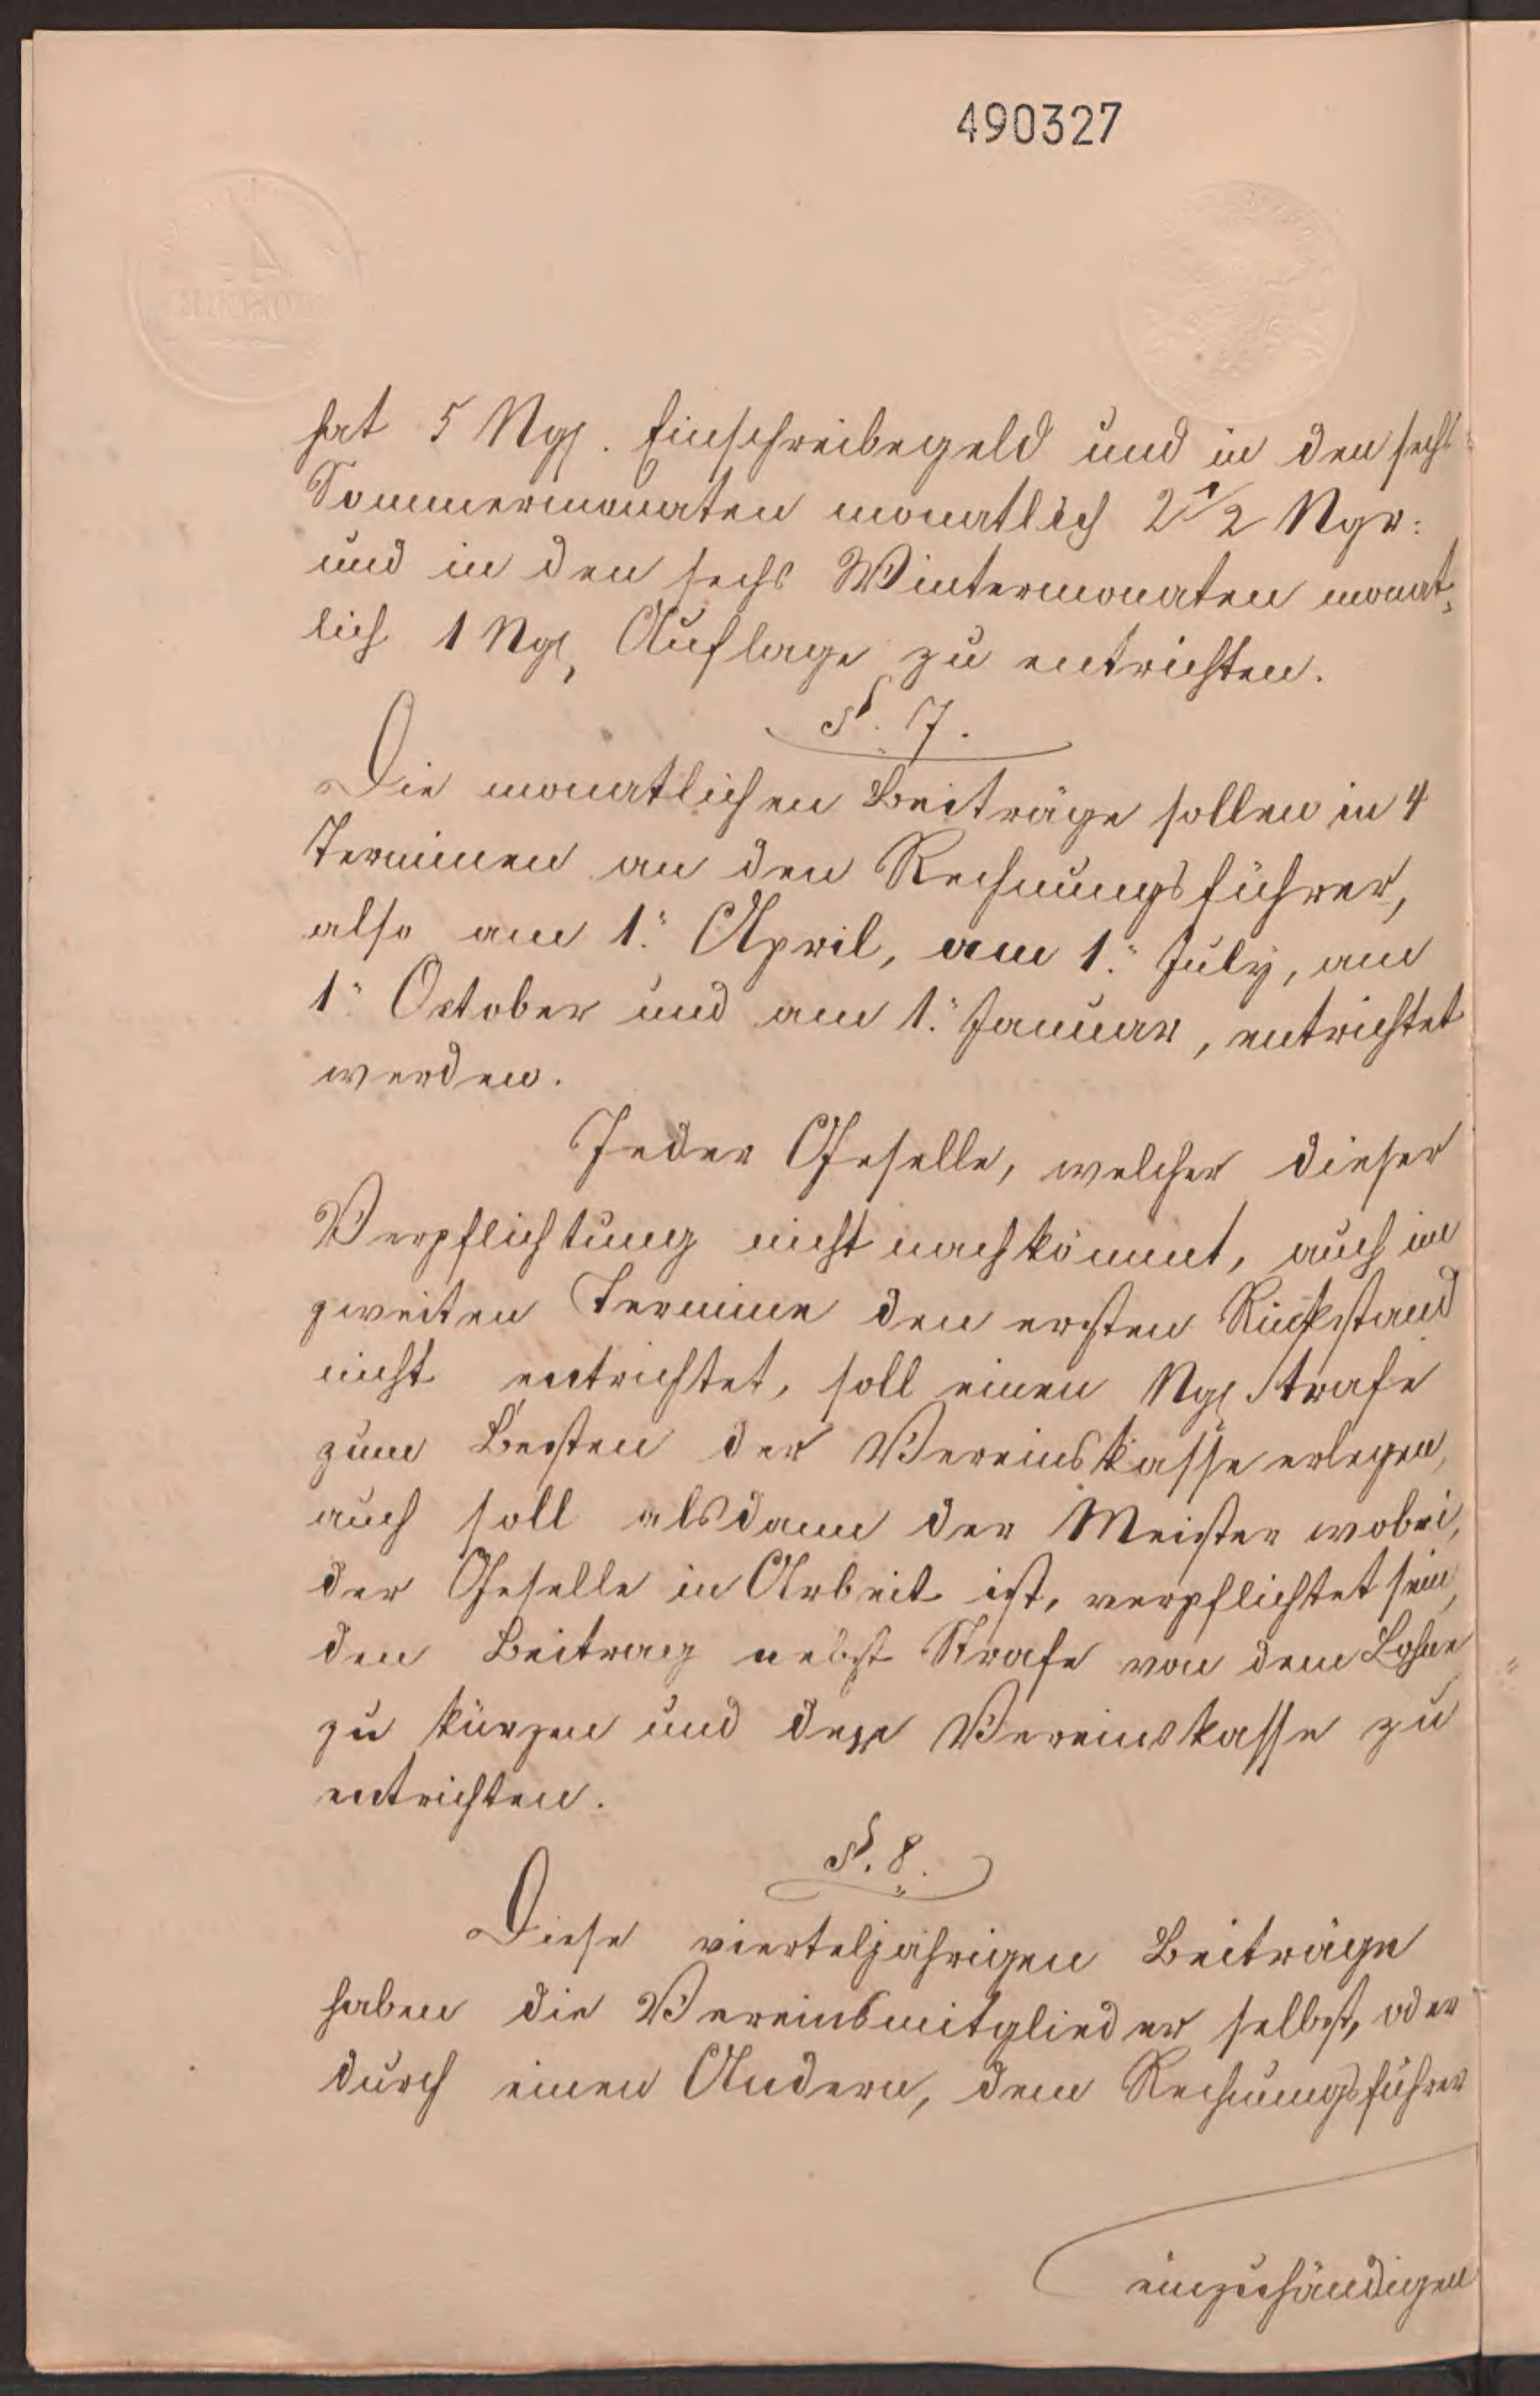 490327
hat 5 Ngr. Einschreibegeld und in den sechs
Sommermonaten monatlich 2 1/2 Ngr:
und in den sechs Wintermonaten monat-
lich 1 Ngr, Auflage zu entrichten.
§. 7.
Die monatlichen Beiträge sollen in 4
Terminen an den Rechnungsführer,
also am 1. April, am 1. July, am
1. October und am 1. Januar, entrichtet
werden.
Jeder Geselle, welcher dieser
Verpflichtung nicht nachkömmt, auch im
zweiten Termine den ersten Rückstand
nicht entrichtet, soll einen Ngr Strafe
zum Besten der Vereinskasse erlegen,
auch soll alsdann der Meister wobei,
der Geselle in Arbeit ist, verpflichtet sein,
den Beitrag nebst Strafe von dem Lohne
zu kürzen und der Vereinskasse zu
entrichten.
§. 8.
Diese vierteljährigen Beiträge
haben die Vereinsmitglieder selbst, oder
durch einen Andern, dem Rechnungsführer
einzuhändigen